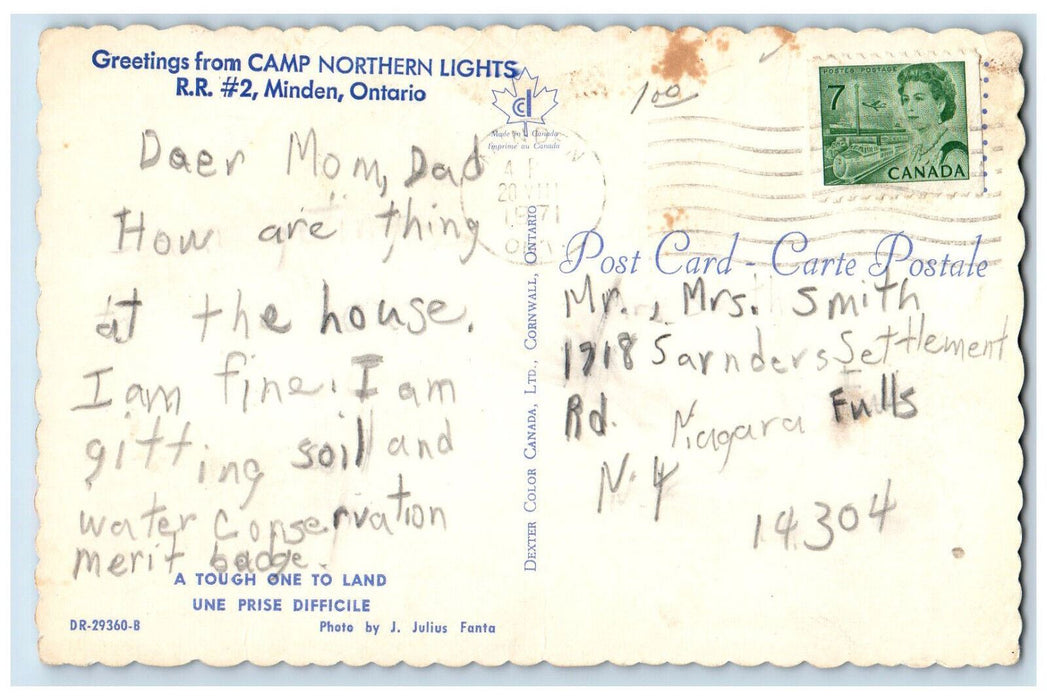 Greetings from CAMP NORTHERN LIGHTS
R.R. #2, Minden, Ontario
Daer Mom, Dad
How are thing
at the house.
I am fine. I am
gitting soil and
water conservation
merit badge.
A TOUGH ONE TO LAND
UNE PRISE DIFFICILE
DR-29360-B
Photo by J. Julius Fanta
Made in Canada
Imprimé au Canada
DEXTER COLOR CANADA, LTD., CORNWALL, ONTARIO
1.00
POSTES POSTAGE
7
CANADA
Post Card - Carte Postale
Mr., Mrs. Smith
1718 Sarnders Settlement
Rd. Niagara Fulls
N.Y
14304